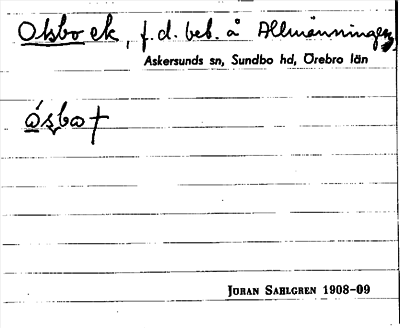 Oksboek, f.d. beb. å Allmänningen,
Askersunds sn, Sundbo hd, Örebro län
JÖRAN SAHLGREN 1908-09